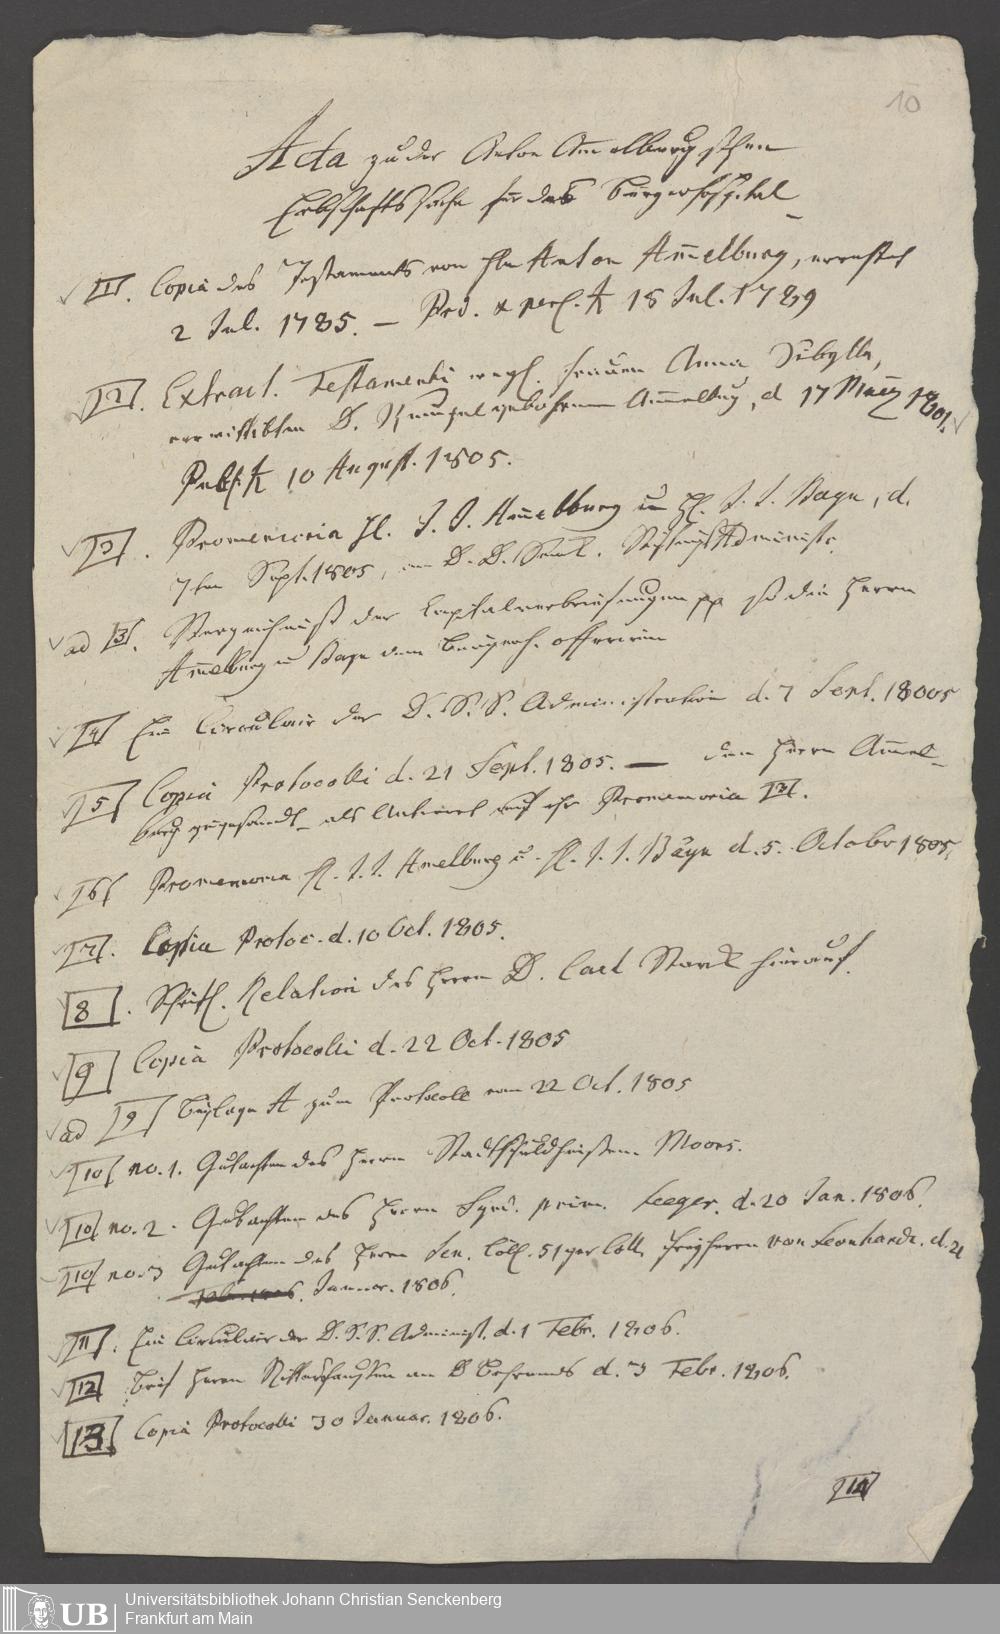 10
Acta zu der Anton Am̄elburgischen
Erbschaftssache für das Bürgerhospital
1. Copia des Testaments von Hn Anton Am̄elburg, errichtet
2 Jul. 1785. – Prd. & 18 Jul. 1789
2. Extract. Testamenti Frauen Anna Sibylla,
verwittibten D. gebohrnen Am̄elburg, d 17 1801.
Publ. 10 August. 1805.
3. Promemoria H. J. J. Am̄elburg u H. J. J. Bayn, d.
7ten Sept. 1805, an D. D. Senk. Stiftungs Administr.
ad 3. Verzeichniß der Capitalverbriefungen pp so die Herrn
Am̄elburg u Bayn dem Bürgerh. offeriren
4 Ein Circulair der D. S. S. Administration d. 7 Sept. 1805
5 Copia Protocolli d. 21 Sept. 1805. — den Herrn Am̄el-
burg zugesandt – als Antwort auf ihr Promemoria 3.
6 Promemoria H. J. J. Amelburg u. H. J. J. Bayn d. 5. Octobr 1805.
7. Copia Protoc. d. 10 Oct. 1805.
8. Schriftl. Relation des Herrn D. Carl Stark hierauf.
9 Copia Protocolli d. 22 Oct. 1805
ad 9 Beylage A zum Protocoll vom 22 Oct. 1805
10 no. 1. Gutachten des Herrn Stadtschuldheissen Moors.
10 no. 2. Gutachten des Herrn Synd. prim. Seeger. d. 20 Jan. 1806.
10 no. 3 Gutachten des Herrn Sen. Coll. 51ger Coll. Freyherrn von Leonhardi. d. 21
Januar. 1806.
11. Ein Circulair der D. S. S. Administ. d. 1 Febr. 1806.
12 Brief Herrn Rittershausen an D Behrends d. 3 Febr. 1806.
13 Copia Protocolli 30 Januar. 1806.
14
UB
Universitätsbibliothek Johann Christian Senckenberg
Frankfurt am Main